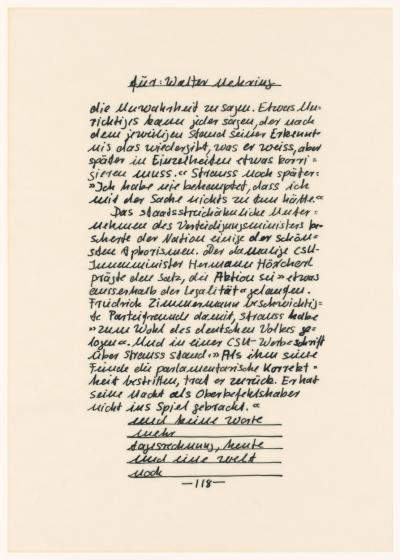 für: Walter Mehring
die Unwahrheit zu sagen. Etwas Un=
richtiges kann jeder sagen, der nach
dem jeweiligen Stand seiner Erkennt
nis das wiedergibt, was er weiss, aber
später in Einzelheiten etwas korri=
gieren muss.« Strauss noch später:
»Ich habe nie behauptet, dass ich
mit der Sache nichts zu tun hätte.«
Das staatsstreichähnliche Unter=
nehmen des Verteidigungsministers be=
scherte der Nation einige der schön=
sten Aphorismen. Der damalige CSU-
Innenminister Hermann Höcherl
prägte den Satz, die Aktion sei »etwas
ausserhalb der Legalität« gelaufen.
Friedrich Zimmermann beschwichtig=
te Parteifreunde damit, Strauss habe
»zum Wohl des deutschen Volkes ge=
logen«. Und in einer CSU-Werbeschrift
über Strauss stand: »Als ihm seine
Feinde die parlamentarische Korrekt=
heit bestritten, trat er zurück. Er hat
seine Macht als Oberbefehlshaber
nicht ins Spiel gebracht.«
und keine Worte
mehr
tagesrechnung, heute
und eine welt
noch
—118—